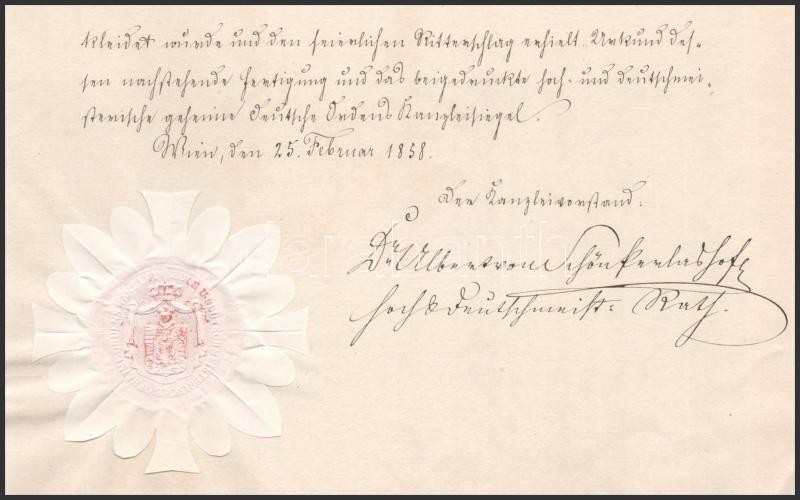 kleidet wurde und den feierlichen Ritterschlag erhielt. Urkund des-
sen nachstehende Fertigung und das beigedruckte hoch- und deutschmei-
sterische geheime Deutsche Ordens Kanzleisiegel.
Wien, den 25. Februar 1858.
Der Kanzleivorstand:
Dr Albert von
hoch & Deutschmeist: Rath.
darabanth